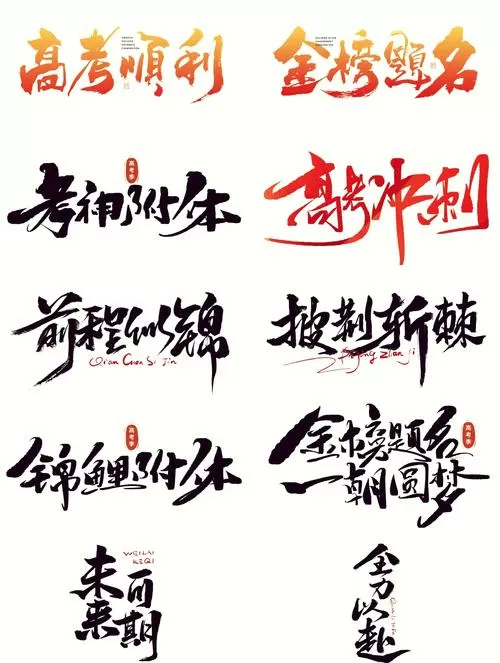 高考順利
金榜題名
高考季
考神附体
高考冲刺
前程似锦
Qian Chen Si Jin
披荆斩棘
高考季
锦鲤附体
高考季
金榜题名
一朝圆梦
WEILAI
KEQI
未来
可期
全力以赴